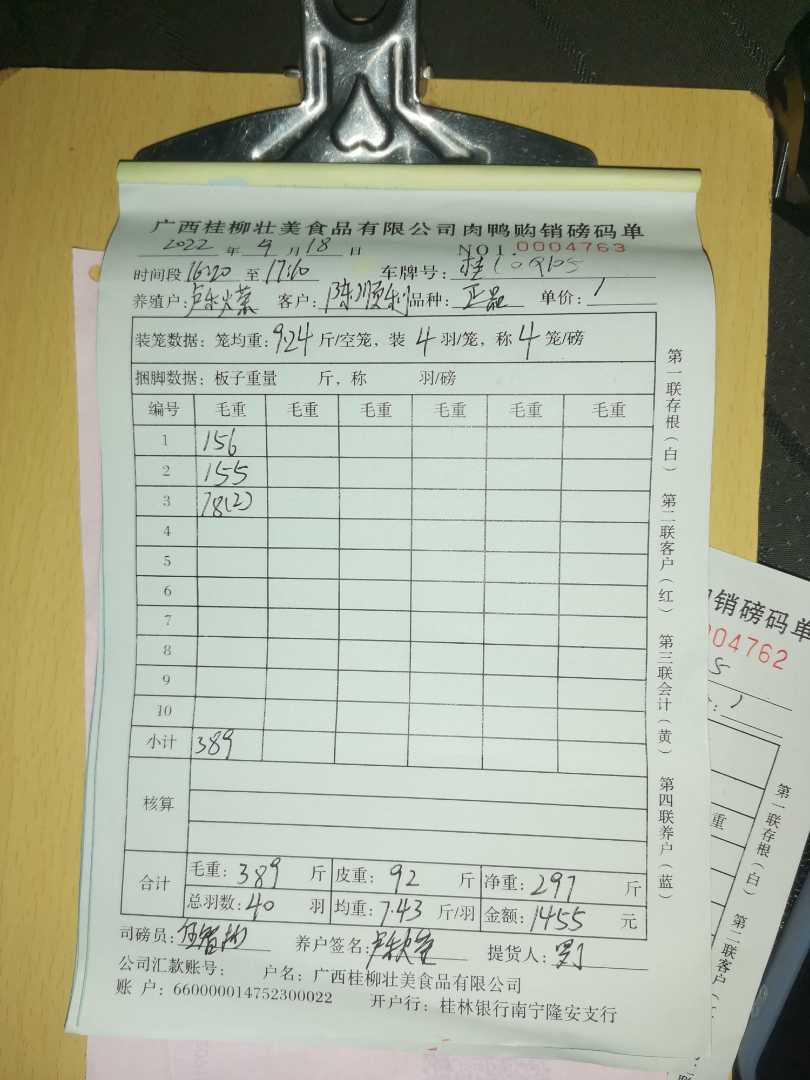 广西桂柳壮美食品有限公司肉鸭购销磅码单
2022 年 9 月 18 日 NO1. 0004763
时间段 16:20 至 17:10 车牌号: 桂
养殖户: 客户: 陈顺利 品种: 正品 单价: 1
装笼数据: 笼均重: 9.24 斤/空笼, 装 4 羽/笼, 称 4 笼/磅
捆脚数据: 板子重量 斤, 称 羽/磅
编号 毛重 毛重 毛重 毛重 毛重 毛重
1 156
2 155
3 78(2)
4
5
6
7
8
9
10
小计 389
核算
合计 毛重: 389 斤 皮重: 92 斤 净重: 297 斤
总羽数: 40 羽 均重: 7.43 斤/羽 金额: 1455 元
司磅员: 养户签名: 提货人:
公司汇款账号: 户名: 广西桂柳壮美食品有限公司
账 户: 660000014752300022 开户行: 桂林银行南宁隆安支行
第一联存根(白) 第二联客户(红) 第三联会计(黄) 第四联养户(蓝)
购销磅码单
004762
5
: 1
重
第一联存根(白) 第二联客户